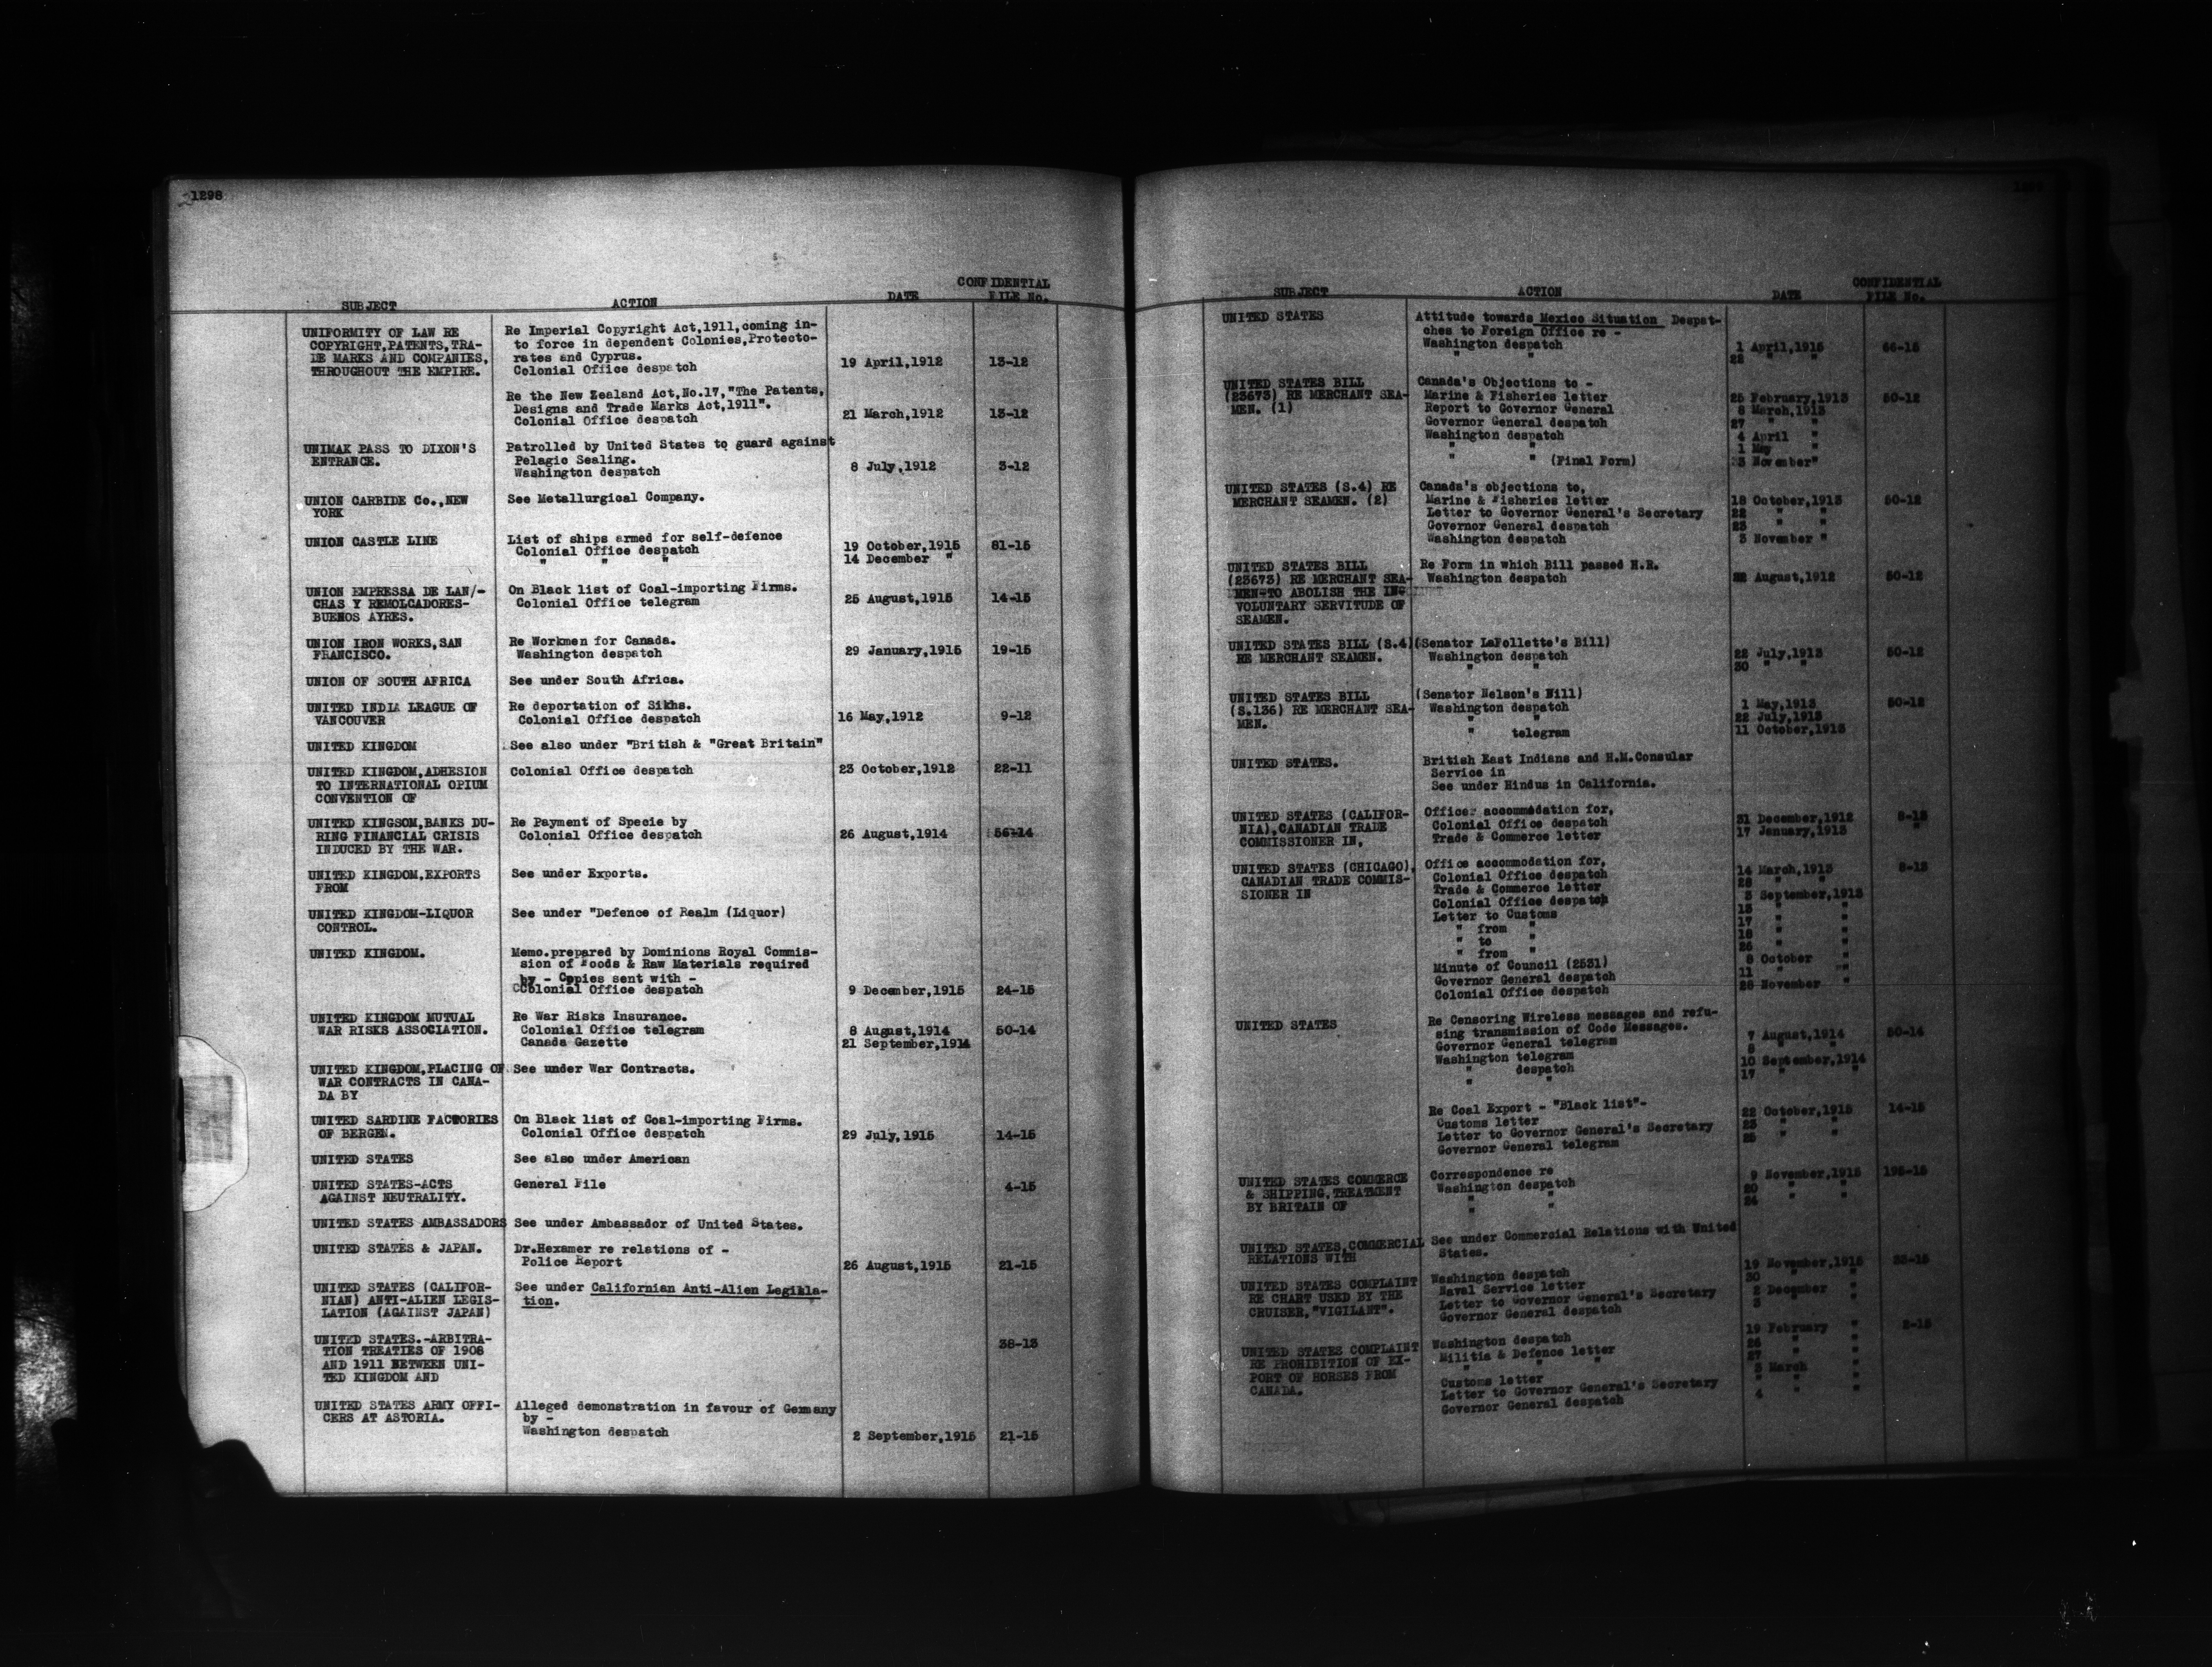 1298
SUBJECT ACTION DATE CONFIDENTIAL FILE No.
UNIFORMITY OF LAW RE Re Imperial Copyright Act,1911,coming in-
COPYRIGHT,PATENTS,TRA- to force in dependent Colonies,Protecto-
DE MARKS AND COMPANIES, rates and Cyprus.
THROUGHOUT THE EMPIRE. Colonial Office despatch 19 April,1912 13-12
Re the New Zealand Act,No.17,"The Patents,
Designs and Trade Marks Act,1911".
Colonial Office despatch 21 March,1912 13-12
UNIMAK PASS TO DIXON'S Patrolled by United States to guard against
ENTRANCE. Pelagic Sealing.
Washington despatch 8 July,1912 3-12
UNION CARBIDE Co.,NEW See Metallurgical Company.
YORK
UNION CASTLE LINE List of ships armed for self-defence
Colonial Office despatch 19 October,1915 81-15
" " " 14 December "
UNION EMPRESSA DE LAN/- On Black list of Coal-importing Firms.
CHAS Y REMOLCADORES- Colonial Office telegram 25 August,1915 14-15
BUENOS AYRES.
UNION IRON WORKS,SAN Re Workmen for Canada.
FRANCISCO. Washington despatch 29 January,1915 19-15
UNION OF SOUTH AFRICA See under South Africa.
UNITED INDIA LEAGUE OF Re deportation of Sikhs.
VANCOUVER Colonial Office despatch 16 May,1912 9-12
UNITED KINGDOM See also under "British & "Great Britain"
UNITED KINGDOM,ADHESION Colonial Office despatch 23 October,1912 22-11
TO INTERNATIONAL OPIUM
CONVENTION OF
UNITED KINGSOM,BANKS DU- Re Payment of Specie by
RING FINANCIAL CRISIS Colonial Office despatch 26 August,1914 56-14
INDUCED BY THE WAR.
UNITED KINGDOM,EXPORTS See under Exports.
FROM
UNITED KINGDOM-LIQUOR See under "Defence of Realm (Liquor)
CONTROL.
UNITED KINGDOM. Memo.prepared by Dominions Royal Commis-
sion of Foods & Raw Materials required
by - Copies sent with -
Colonial Office despatch 9 December,1915 24-15
UNITED KINGDOM MUTUAL Re War Risks Insurance.
WAR RISKS ASSOCIATION. Colonial Office telegram 8 August,1914 50-14
Canada Gazette 21 September,1914
UNITED KINGDOM,PLACING OF See under War Contracts.
WAR CONTRACTS IN CANA-
DA BY
UNITED SARDINE FACTORIES On Black list of Coal-importing Firms.
OF BERGEN. Colonial Office despatch 29 July,1915 14-15
UNITED STATES See also under American
UNITED STATES-ACTS General File 4-15
AGAINST NEUTRALITY.
UNITED STATES AMBASSADORS See under Ambassador of United States.
UNITED STATES & JAPAN. Dr.Hexamer re relations of -
Police Report 26 August,1915 21-15
UNITED STATES (CALIFOR- See under Californian Anti-Alien Legisla-
NIAN) ANTI-ALIEN LEGIS- tion.
LATION (AGAINST JAPAN)
UNITED STATES.-ARBITRA- 38-13
TION TREATIES OF 1908
AND 1911 BETWEEN UNI-
TED KINGDOM AND
UNITED STATES ARMY OFFI- Alleged demonstration in favour of Germany
CERS AT ASTORIA. by -
Washington despatch 2 September,1915 21-15
SUBJECT ACTION DATE CONFIDENTIAL FILE No.
UNITED STATES Attitude towards Mexico Situation Despat-
ches to Foreign Office re -
Washington despatch 1 April,1915 66-15
" " 22 " "
UNITED STATES BILL Canada's Objections to -
(23673) RE MERCHANT SEA- Marine & Fisheries letter 25 February,1913 50-12
MEN. (1) Report to Governor General 8 March,1913
Governor General despatch 27 " "
Washington despatch 4 April "
" " 1 May "
" " (Final Form) 3 November"
UNITED STATES (S.4) RE Canada's objections to,
MERCHANT SEAMEN. (2) Marine & Fisheries letter 18 October,1913 50-12
Letter to Governor General's Secretary 22 " "
Governor General despatch 23 " "
Washington despatch 3 November "
UNITED STATES BILL Re Form in which Bill passed H.R.
(23673) RE MERCHANT SEA- Washington despatch August,1912 50-12
MEN-TO ABOLISH THE IN
VOLUNTARY SERVITUDE OF
SEAMEN.
UNITED STATES BILL (S.4) (Senator LaFollette's Bill)
RE MERCHANT SEAMEN. Washington despatch 22 July,1913 50-12
" " 30 " "
UNITED STATES BILL (Senator Nelson's Bill)
(S.136) RE MERCHANT SEA- Washington despatch 1 May,1913 50-12
MEN. " " 22 July,1913
" telegram 11 October,1913
UNITED STATES. British East Indians and H.M.Consular
Service in
See under Hindus in California.
UNITED STATES (CALIFOR- Office accommodation for,
NIA),CANADIAN TRADE Colonial Office despatch 31 December,1912 8-13
COMMISSIONER IN, Trade & Commerce letter 17 January,1913 "
UNITED STATES (CHICAGO), Office accommodation for,
CANADIAN TRADE COMMIS- Colonial Office despatch 14 March,1913 8-13
SIONER IN Trade & Commerce letter 28 " "
Colonial Office despatch 3 September,1913
Letter to Customs 15 " "
" from " 17 " "
" to " 18 " "
" from " 26 " "
Minute of Council (2531) 8 October "
Governor General despatch 11 " "
Colonial Office despatch 28 November "
UNITED STATES Re Censoring Wireless messages and refu-
sing transmission of Code Messages.
Governor General telegram 7 August,1914 50-14
Washington telegram 8 " "
" despatch 10 September,1914
" " 17 " "
Re Coal Export - "Black list"-
Customs letter 22 October,1915 14-15
Letter to Governor General's Secretary 23 " "
Governor General telegram 25 " "
UNITED STATES COMMERCE Correspondence re
& SHIPPING,TREATMENT Washington despatch 9 November,1915 195-15
BY BRITAIN OF " " 20 " "
" " 24 " "
UNITED STATES,COMMERCIAL See under Commercial Relations with United
RELATIONS WITH States.
UNITED STATES COMPLAINT Washington despatch 19 November,1915
RE CHART USED BY THE Naval Service letter 30 " "
CRUISER,"VIGILANT". Letter to Governor General's Secretary 2 December "
Governor General despatch 3 " "
UNITED STATES COMPLAINT Washington despatch 19 February "
RE PROHIBITION OF EX- Militia & Defence letter 26 " "
PORT OF HORSES FROM " " " 27 " "
CANADA. Customs letter 3 March "
Letter to Governor General's Secretary " " "
Governor General despatch 4 " "